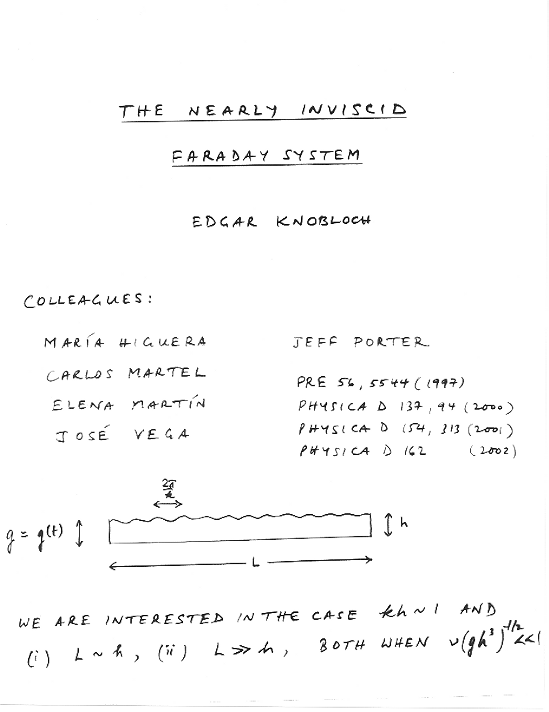 THE NEARLY INVISCID
FARADAY SYSTEM
EDGAR KNOBLOCH
COLLEAGUES:
MARÍA HIGUERA
CARLOS MARTEL
ELENA MARTÍN
JOSÉ VEGA
JEFF PORTER
PRE 56, 5544 (1997)
PHYSICA D 137, 94 (2000)
PHYSICA D 154, 313 (2001)
PHYSICA D 162 (2002)
2π/k
g = g(t)
h
L
WE ARE INTERESTED IN THE CASE kh ~ 1 AND
(i) L ~ h, (ii) L >> h, BOTH WHEN ν(gh³)^-1/2 << 1